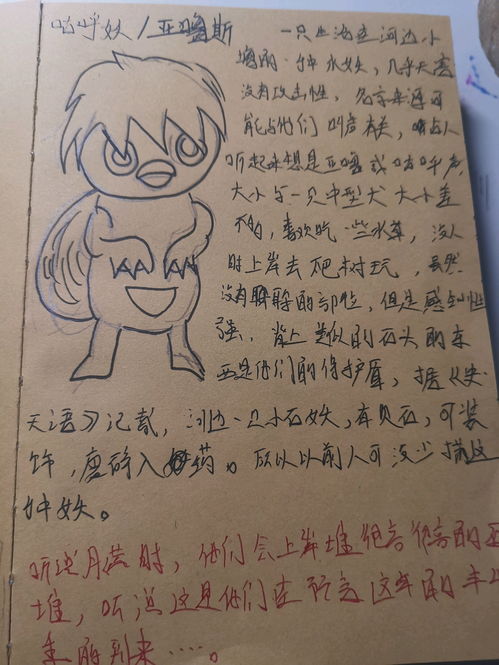 呼妖/亚噜斯
一只生活在河边小
的一种水妖，几乎无害
没有攻击性，名字来源可
能与他们叫声有关，有点人
听起来想是亚噜或咕呼声
大小与一只中型犬大小差
不的，喜欢吃一些水草，没人
时上岸去爬树玩，虽然
没有眼睛的部位，但是感知性
强，背上类似的石头的东
西是他们的保护盾，据《史
天语》记载，河边一只小石妖，有贝石，可装
饰，磨碎入药。所以以前人可没少搞这
种妖。
听说月满时，他们会上岸堆很高很高的
堆，听说这是他们在预言这年的丰
季的到来……。